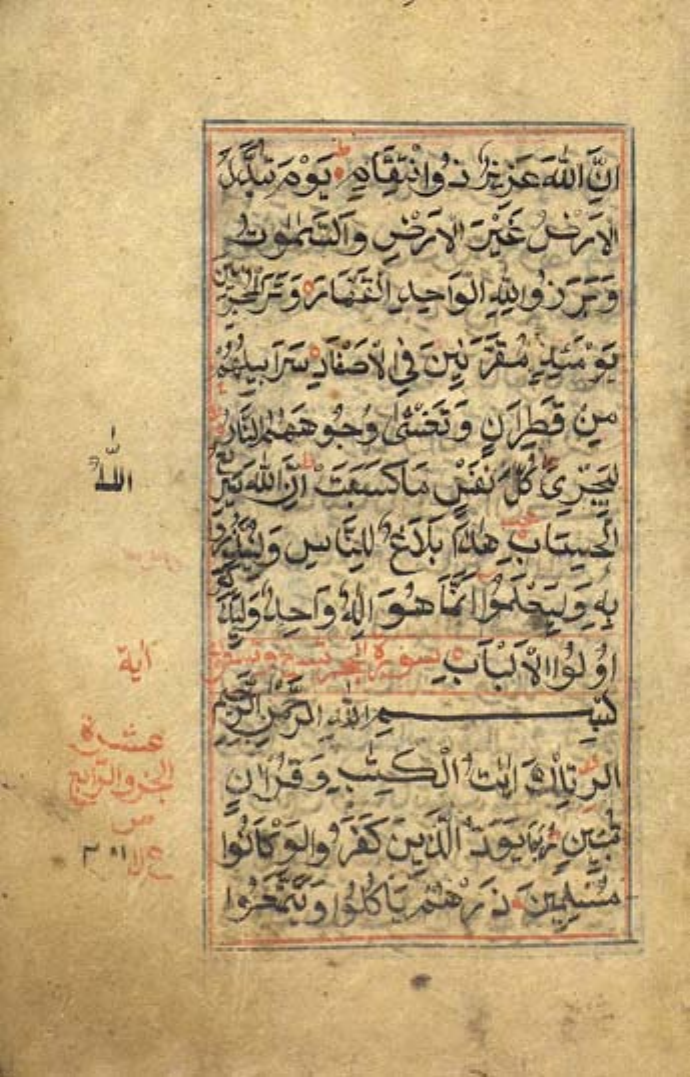 اِنَّ اللّٰهَ عَزِيزٌ ذُوانْتِقَامٍ ط يَوْمَ تُبَدَّلُ
الاَرْضُ غَيْرَ الاَرْضِ وَالسَّمٰوٰتُ
وَبَرَزُوا لِلّٰهِ الوَاحِدِ القَهَّارِ وَتَرَى المُجْرِمِينَ
يَوْمَئِذٍ مُقَرَّنِينَ فِي الاَصْفَادِ سَرَابِيلُهُمْ
مِنْ قَطِرَانٍ وَتَغْشٰى وُجُوهَهُمُ النَّارُ
لِيَجْزِيَ اللّٰهُ كُلَّ نَفْسٍ مَا كَسَبَتْ ط اِنَّ اللّٰهَ سَرِيعُ
الْحِسَابِ هٰذَا بَلَاغٌ لِلنَّاسِ وَلِيُنْذَرُوا
بِهِ وَلِيَعْلَمُوا اَنَّمَا هُوَ اِلٰهٌ وَاحِدٌ وَلِيَذَّكَّرَ
اُولُوا الاَلْبَابِ سورة الحجر تسع وتسعون
بِسْمِ اللّٰهِ الرَّحْمٰنِ الرَّحِيمِ
الر تِلْكَ اٰيٰتُ الْكِتٰبِ وَقُرْاٰنٍ
مُبِينٍ رُبَمَا يَوَدُّ الَّذِينَ كَفَرُوا لَوْ كَانُوا
مُسْلِمِينَ ذَرْهُمْ يَاْكُلُوا وَيَتَمَتَّعُوا
اللّٰه
اية
عشرة
الجزو الرابع